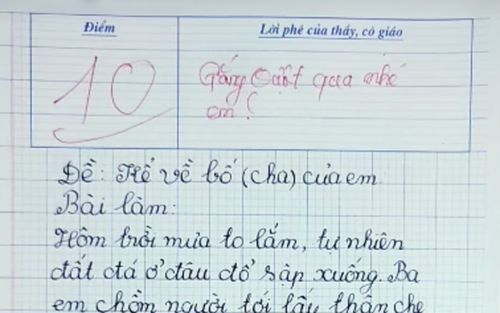 Điểm
Lời phê của thầy, cô giáo
10
Gắng vượt qua nhé
em!
Đề: Kể về bố (cha) của em.
Bài làm:
Hôm trời mưa to lắm, tự nhiên
đất đá ở đâu đổ sập xuống. Ba
em chồm người tới lấy thân che